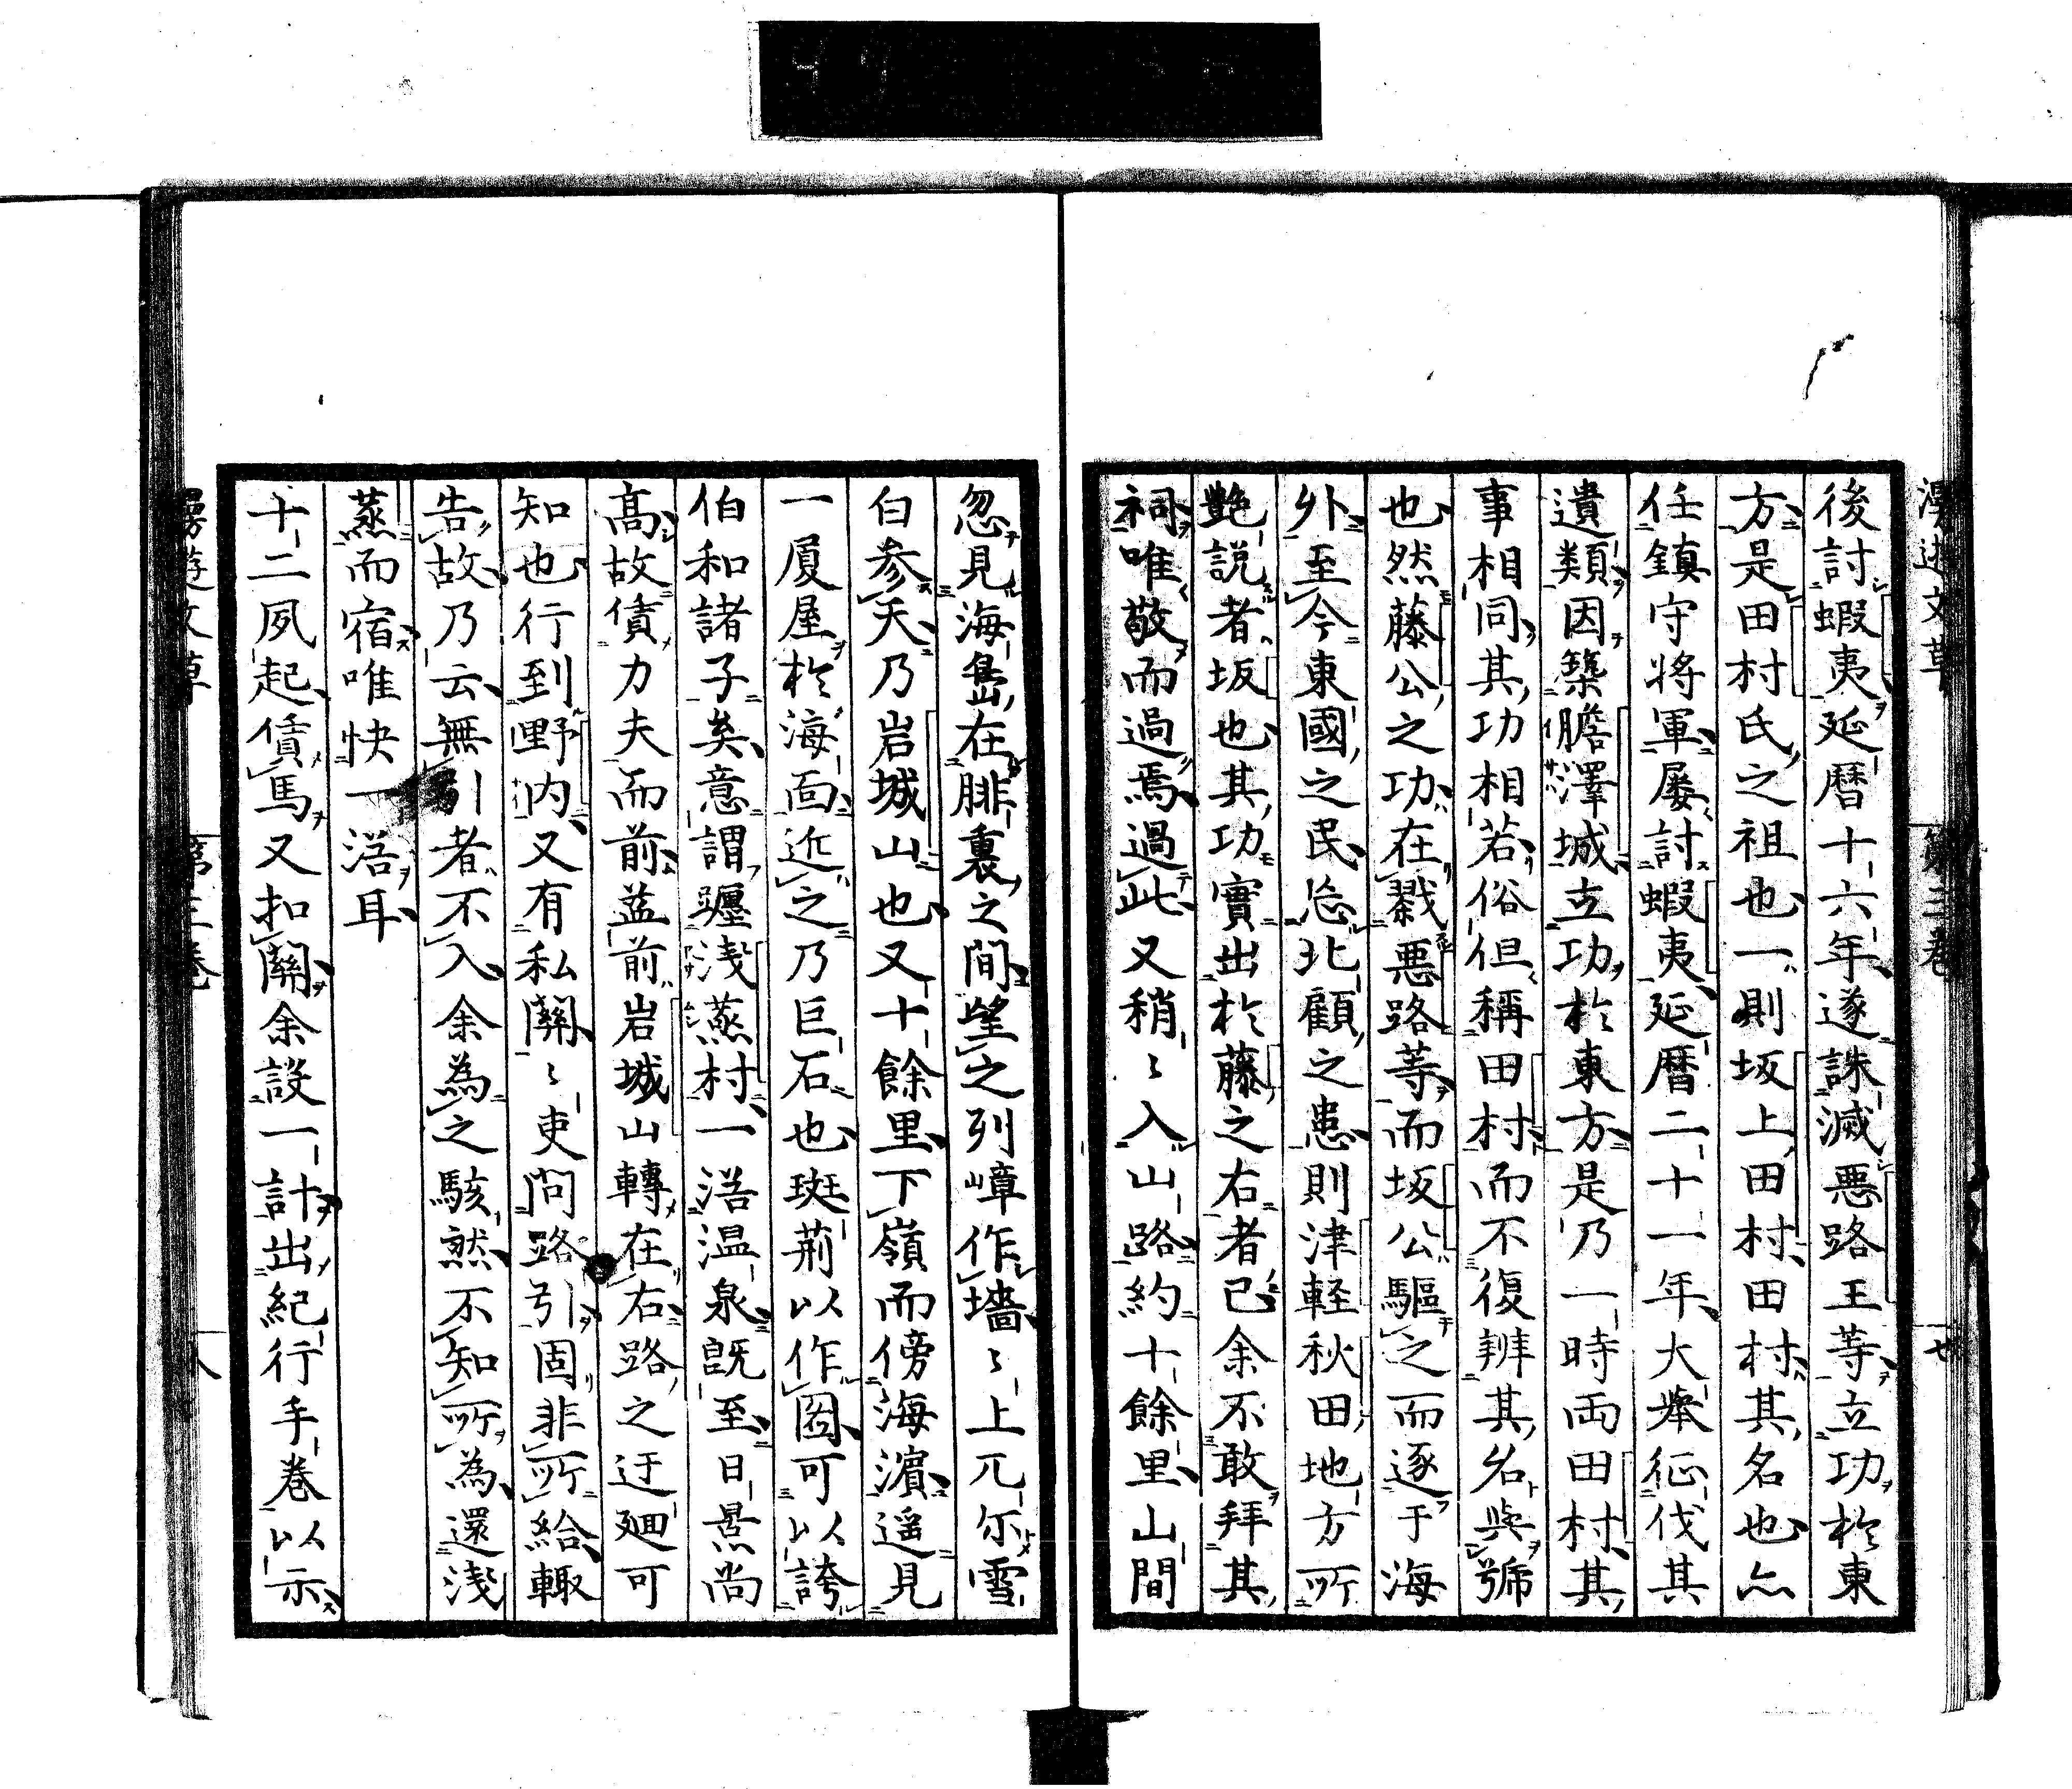 後討蝦夷延暦十六年遂誅滅悪路王等立功於東
方是田村氏之祖也一則坂上田村田村其名也亦
任鎮守将軍屡討蝦夷延暦二十一年大举征伐其
遺類因築膽澤城立功於東方是乃一時両田村其
事相同其功相若俗但稱田村而不復辨其名與號
也然藤公之功在戮悪路等而坂公驅之而逐于海
外至今東國之民忘北顧之患則津軽秋田地方所
艶説者坂也其功實出於藤之右者已余不敢拜其
祠唯敬而過焉過此又稍〻入山路約十餘里山間
忽見海嶌在腓裏之間望之列嶂作墻〻上兀尓雪
白参天乃岩城山也又十餘里下嶺而傍海濵遥見
一厦屋於海面近之乃巨石也斑荊以作圖可以誇
伯和諸子矣意謂躔浅蒸村一浴温泉既至日景尚
髙故債力夫而前盖前岩城山轉在右路之迂廻可
知也行到野内又有私關〻吏問路引固非所給輙
告故乃云無引者不入余為之駭然不知所為還浅
蒸而宿唯快一浴耳
十二夙起賃馬又扣關余設一計出紀行手巻以示